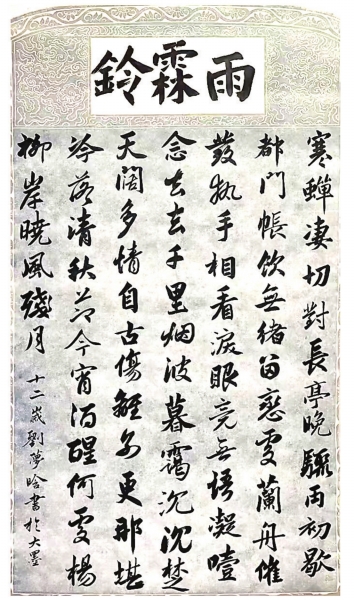 雨霖鈴
寒蟬淒切對長亭晚驟雨初歇
都門帳飲無緒留戀處蘭舟催
發執手相看淚眼竟無語凝噎
念去去千里烟波暮靄沉沉楚
天闊多情自古傷離別更那堪
冷落清秋節今宵酒醒何處楊
柳岸曉風殘月
十二歲劉夢晗書於大墨